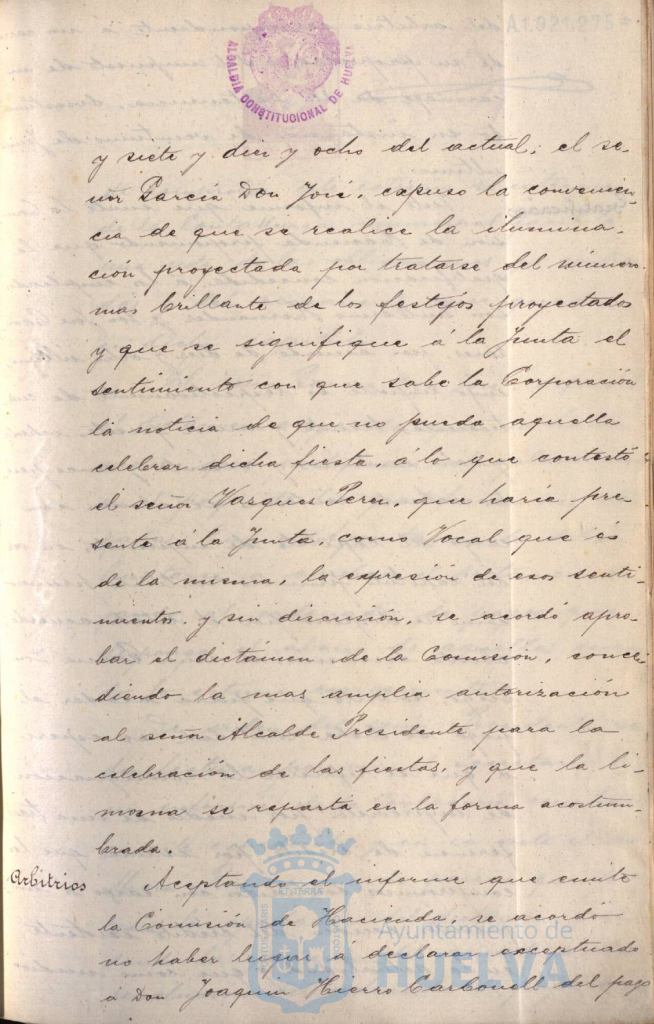 A1.921.275
ALCALDÍA CONSTITUCIONAL DE HUELVA
y siete y diez y ocho del actual; el se-
ñor García Don José, expuso la convenien-
cia de que se realice la ilumina-
ción proyectada por tratarse del número
mas brillante de los festejos proyectados
y que se signifique á la Junta el
sentimiento con que sabe la Corporación
la noticia de que no pueda aquella
celebrar dicha fiesta, á lo que contestó
el señor Vazquez Perez, que haría pre-
sente á la Junta, como Vocal que és
de la misma, la expresión de esos senti-
mientos, y sin discusión, se acordó apro-
bar el dictámen de la Comisión, conce-
diendo la mas amplia autorización
al señor Alcalde Presidente para la
celebración de las fiestas, y que la li-
mosna se reparta en la forma acostum-
brada.
Arbitrios
Aceptando el informe que emite
la Comisión de Hacienda, se acordó
no haber lugar á declarar exceptuado
á Don Joaquin Hierro Carbonell del pago
Ayuntamiento de
HUELVA